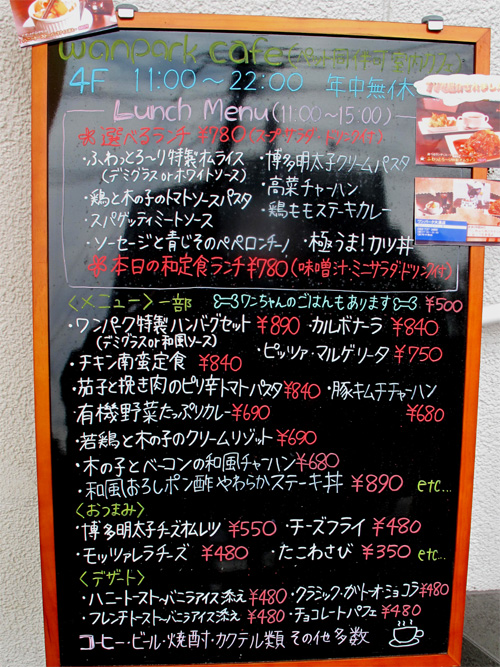 wanpark cafe (ペット同伴可 
4F 11:00～22:00 年中無休
Lunch Menu (11:00～15:00)
※選べるランチ ¥780(スープ・サラダ・ドリンク付)
・ふわっとろ～り特製オムライス ・博多明太子クリームパスタ
(デミグラスorホワイトソース) ・高菜チャーハン
・鶏と木の子のトマトソースパスタ ・鶏ももステーキカレー
・スパゲッティミートソース
・ソーセージと青じそのペペロンチーノ ・極うま!カツ丼
※本日の和定食ランチ¥780(味噌汁・ミニサラダ・ドリンク付)
<メニュー>一部 ワンちゃんのごはんもあります ¥500
・ワンパーク特製ハンバーグセット ¥890 ・カルボナーラ ¥840
(デミグラスor和風ソース) ・ピッツァ・マルゲリータ ¥750
・チキン南蛮定食 ¥840
・茄子と挽き肉のピリ辛トマトパスタ¥840 ・豚キムチチャーハン
・有機野菜たっぷりカレー¥690 ¥680
・若鶏と木の子のクリームリゾット¥690
・木の子とベーコンの和風チャーハン¥680
・和風おろしポン酢やわらかステーキ丼 ¥890 etc...
<おつまみ>
・博多明太子チーズオムレツ ¥550 ・チーズフライ ¥480
・モッツァレラチーズ ¥480 ・たこわさび ¥350 etc...
<デザート>
・ハニートースト～バニラアイス添え¥480 ・クラシック・ガトーオ・ショコラ¥480
・フレンチトースト～バニラアイス添え¥480 ・チョコレートパフェ¥480
コーヒー・ビール・焼酎・カクテル類 その他多数